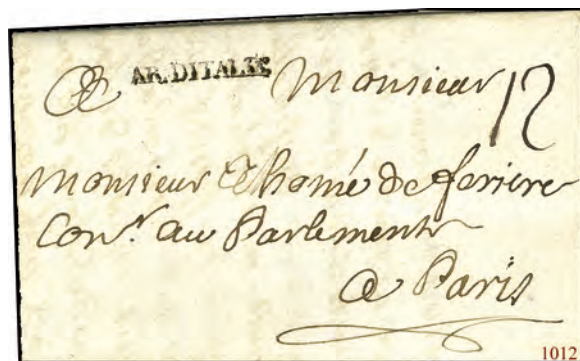 A AR.DITALIE Monsieur 12
Monsieur Thomé de feriere
Con.r au Parlement
A Paris
1012